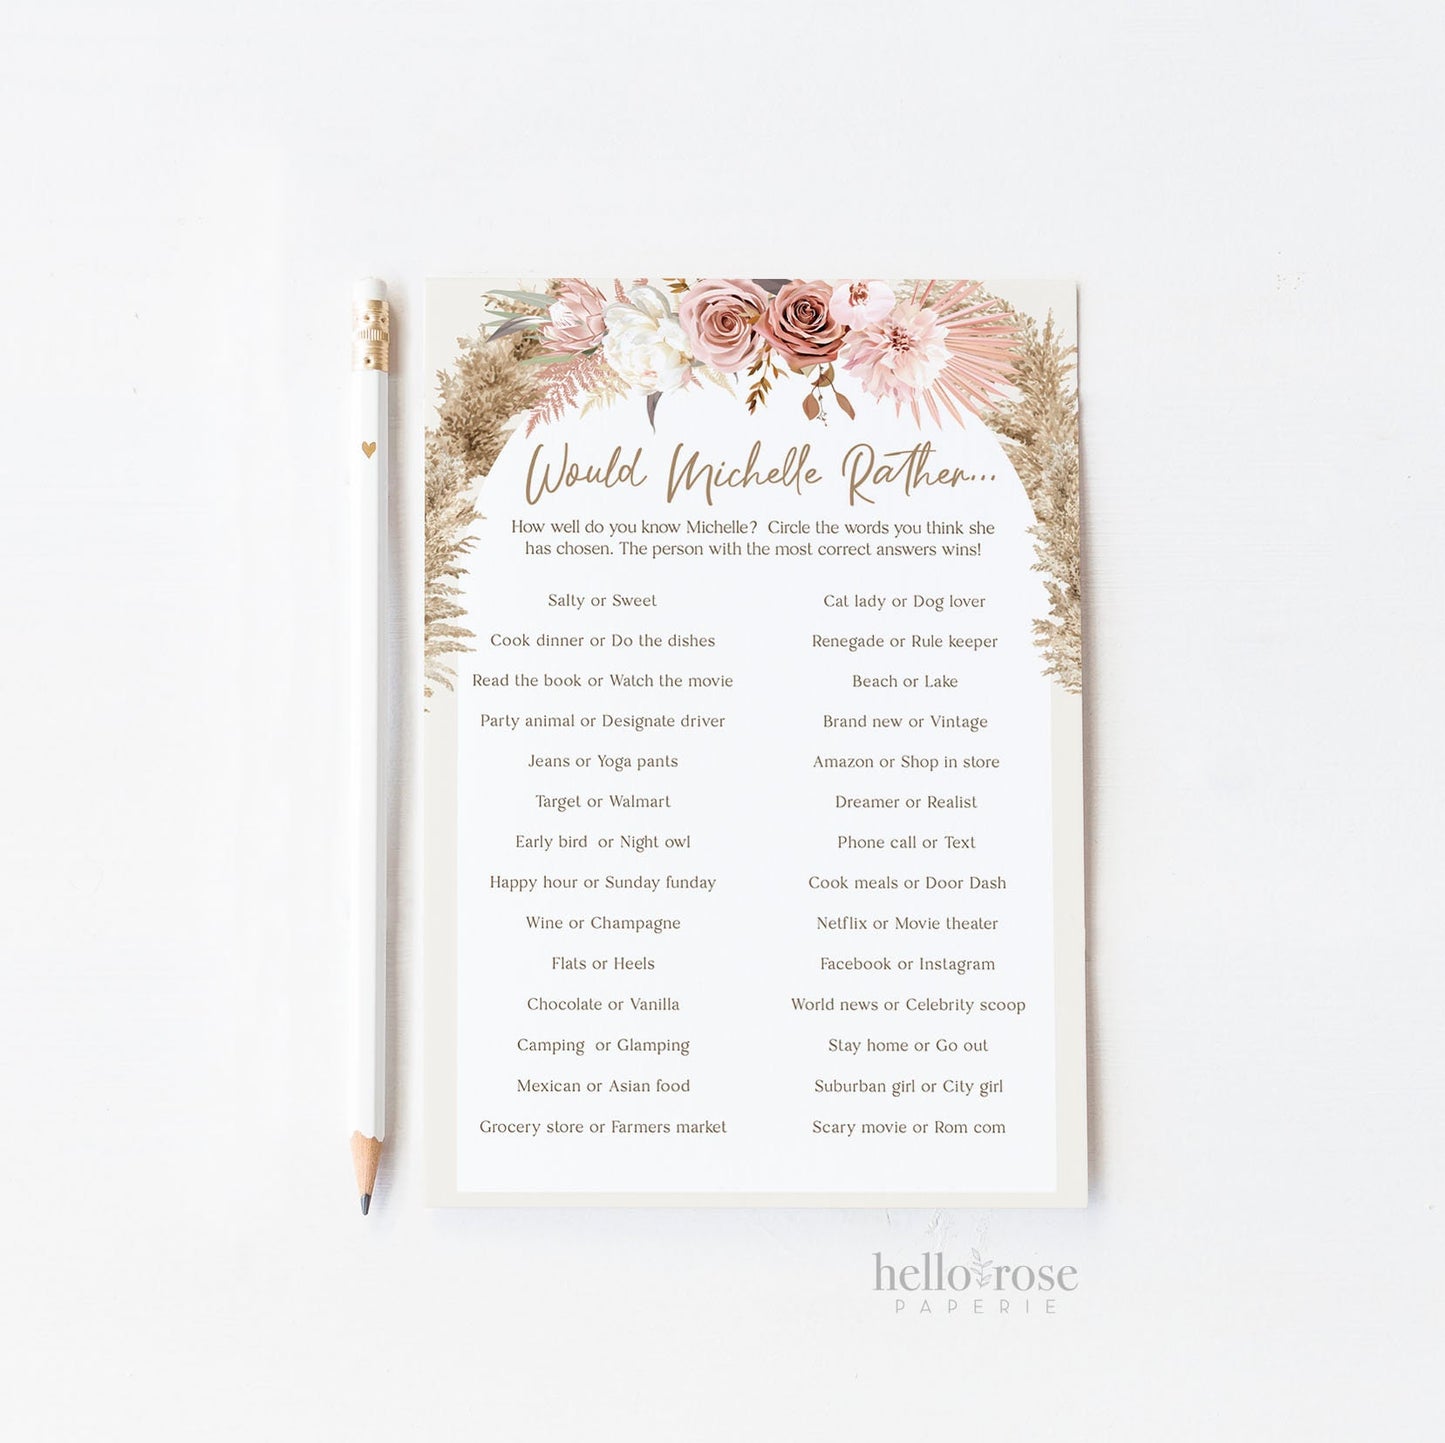 Would Michelle Rather...
How well do you know Michelle? Circle the words you think she
has chosen. The person with the most correct answers wins!
Salty or Sweet
Cook dinner or Do the dishes
Read the book or Watch the movie
Party animal or Designate driver
Jeans or Yoga pants
Target or Walmart
Early bird or Night owl
Happy hour or Sunday funday
Wine or Champagne
Flats or Heels
Chocolate or Vanilla
Camping or Glamping
Mexican or Asian food
Grocery store or Farmers market
Cat lady or Dog lover
Renegade or Rule keeper
Beach or Lake
Brand new or Vintage
Amazon or Shop in store
Dreamer or Realist
Phone call or Text
Cook meals or Door Dash
Netflix or Movie theater
Facebook or Instagram
World news or Celebrity scoop
Stay home or Go out
Suburban girl or City girl
Scary movie or Rom com
hello rose
PAPERIE